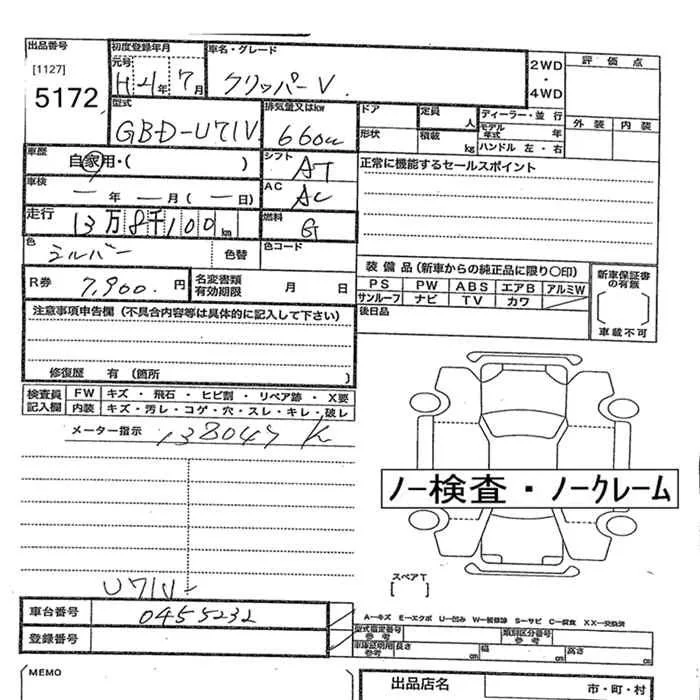 出品番号 初度登録年月 車名・グレード 2WD・4WD 評価点
[1127] 元号
5172 H21年7月 クリッパーV
型式 排気量又はkw ドア 定員 人 ディーラー・並行 外装 内装
GBD-U71V 660cc 形状 積載 kg モデル年式 年
ハンドル 左・右
車歴 自家用・( ) シフト AT 正常に機能するセールスポイント
車検 ー年ー月(ー日) AC AC
走行 13万8千100km 燃料 G
色 シルバー 色替 色コード
装備品(新車からの純正品に限り〇印) 新車保証書の有無
R券 7,900.円 名変書類有効期限 月 日 PS PW ABS エアB アルミW
サンルーフ ナビ TV カワ
注意事項申告欄(不具合内容等は具体的に記入して下さい) 後日品 車載不可
修復歴 有(箇所 )
検査員記入欄 FW キズ・飛石・ヒビ割・リペア跡・X要
内装 キズ・汚レ・コゲ・穴・スレ・キレ・破レ
メーター指示 138047K
ノー検査・ノークレーム
スペアT
[ ]
U71V-
車台番号 0455232
A-キズ E-エクボ U-凹み W-補修跡 S-サビ C-腐食 XX-交換済
登録番号 型式指定番号 参考 類別区分番号
車庫証明用参考 長さ cm 幅 cm 高さ cm
MEMO 出品店名 市・町・村